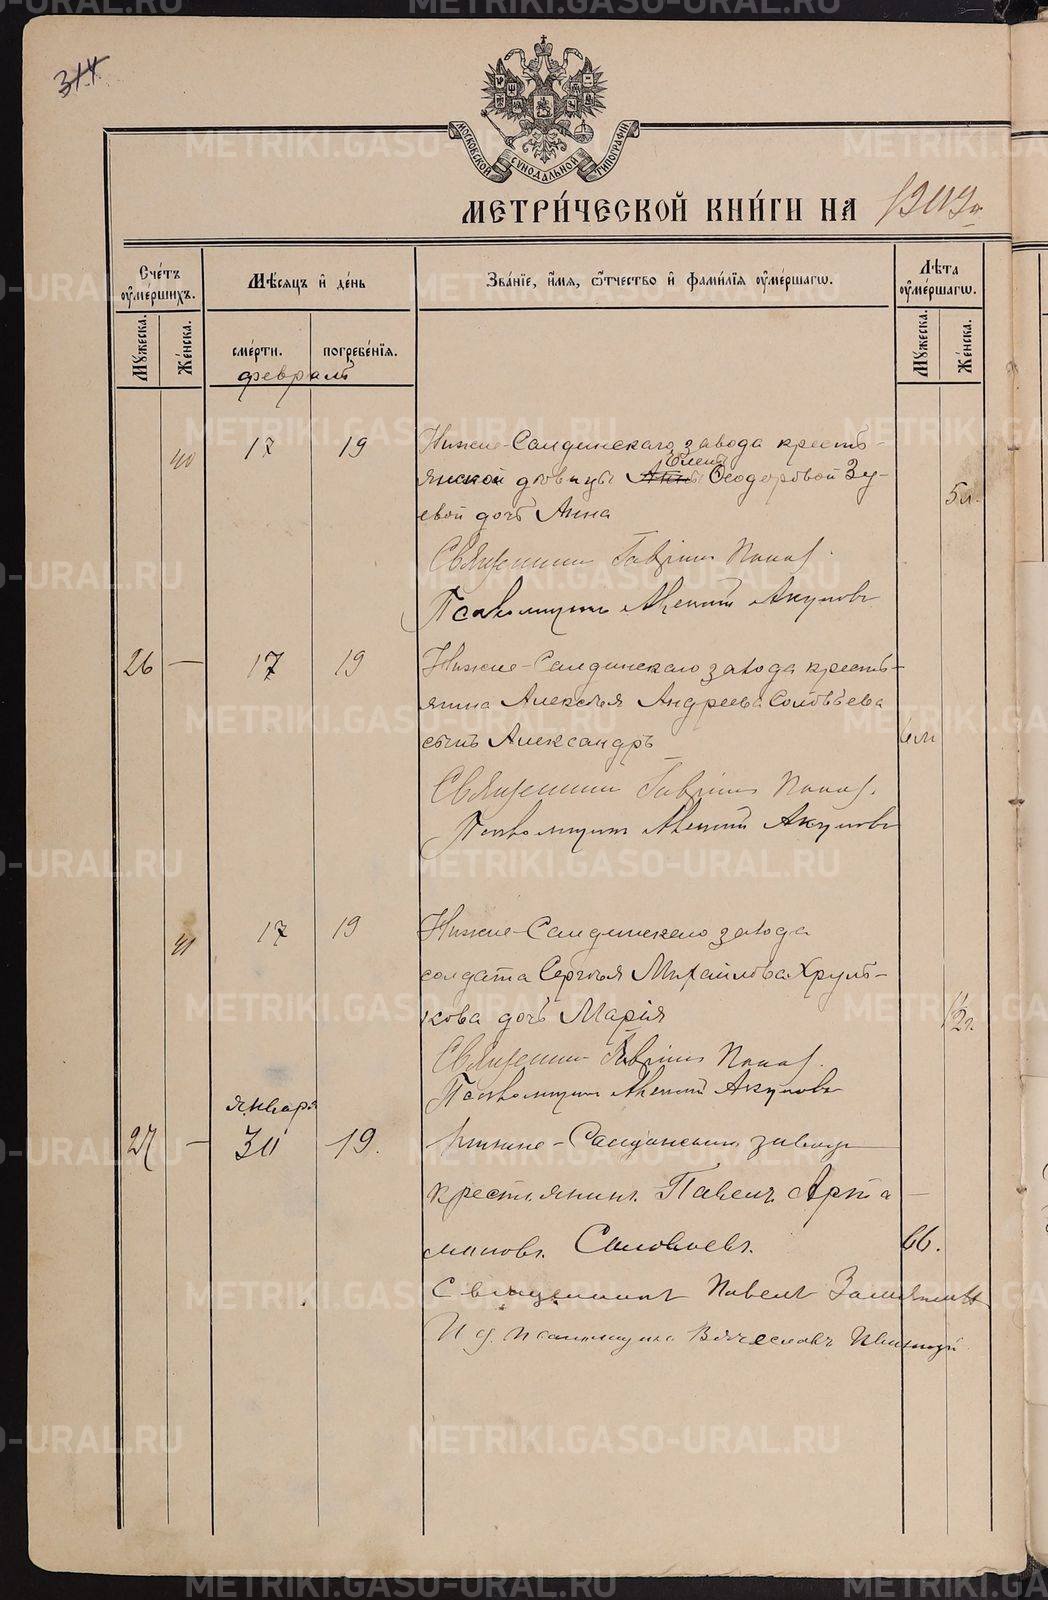 314
МОСКОВСКОЙ СѴНОДАЛЬНОЙ ТИПОГРАФІИ
МЕТРИ́ЧЕСКОЙ КНИ́ГИ НА
Сче́тъ ѹ҆ме́ршихъ.
Мѣ́сяцъ и҆ де́нь
Зва́нїе, и҆́мя, ѻ҆́тчество и҆ фами́лїя ѹ҆ме́ршагѡ.
Лѣ́та ѹ҆ме́ршагѡ.
Мꙋ́жеска.
Же́нска.
сме́рти.
погребе́нїя.
Мꙋ́жеска.
Же́нска.
февраль
40 17 19 Нижне-Салдинскаго завода кресть-
янской девицы Елены Ѳеодоровой Зу-
евой дочь Анна
5
Священник Павел
Псаломщикъ Акуловъ
26 — 17 19 Нижне-Салдинскаго завода кресть-
янина Алексѣя Андреева Соловьева
сынъ Александръ
6м
Священник
Псаломщикъ Акуловъ
41 17 19 Нижне-Салдинскаго завода
солдата Сергѣя Михайлова Хруль-
кова дочь Марія
1/2г.
Священник
Псаломщикъ Акуловъ
января
27 — 30 19. Нижне-Салдинскаго завода
крестьянинъ Павелъ Арта-
моновъ Соловьевъ.
66.
Священникъ Павелъ
И д. псаломщика Вячеславъ
METRIKI.GASO-URAL.RU